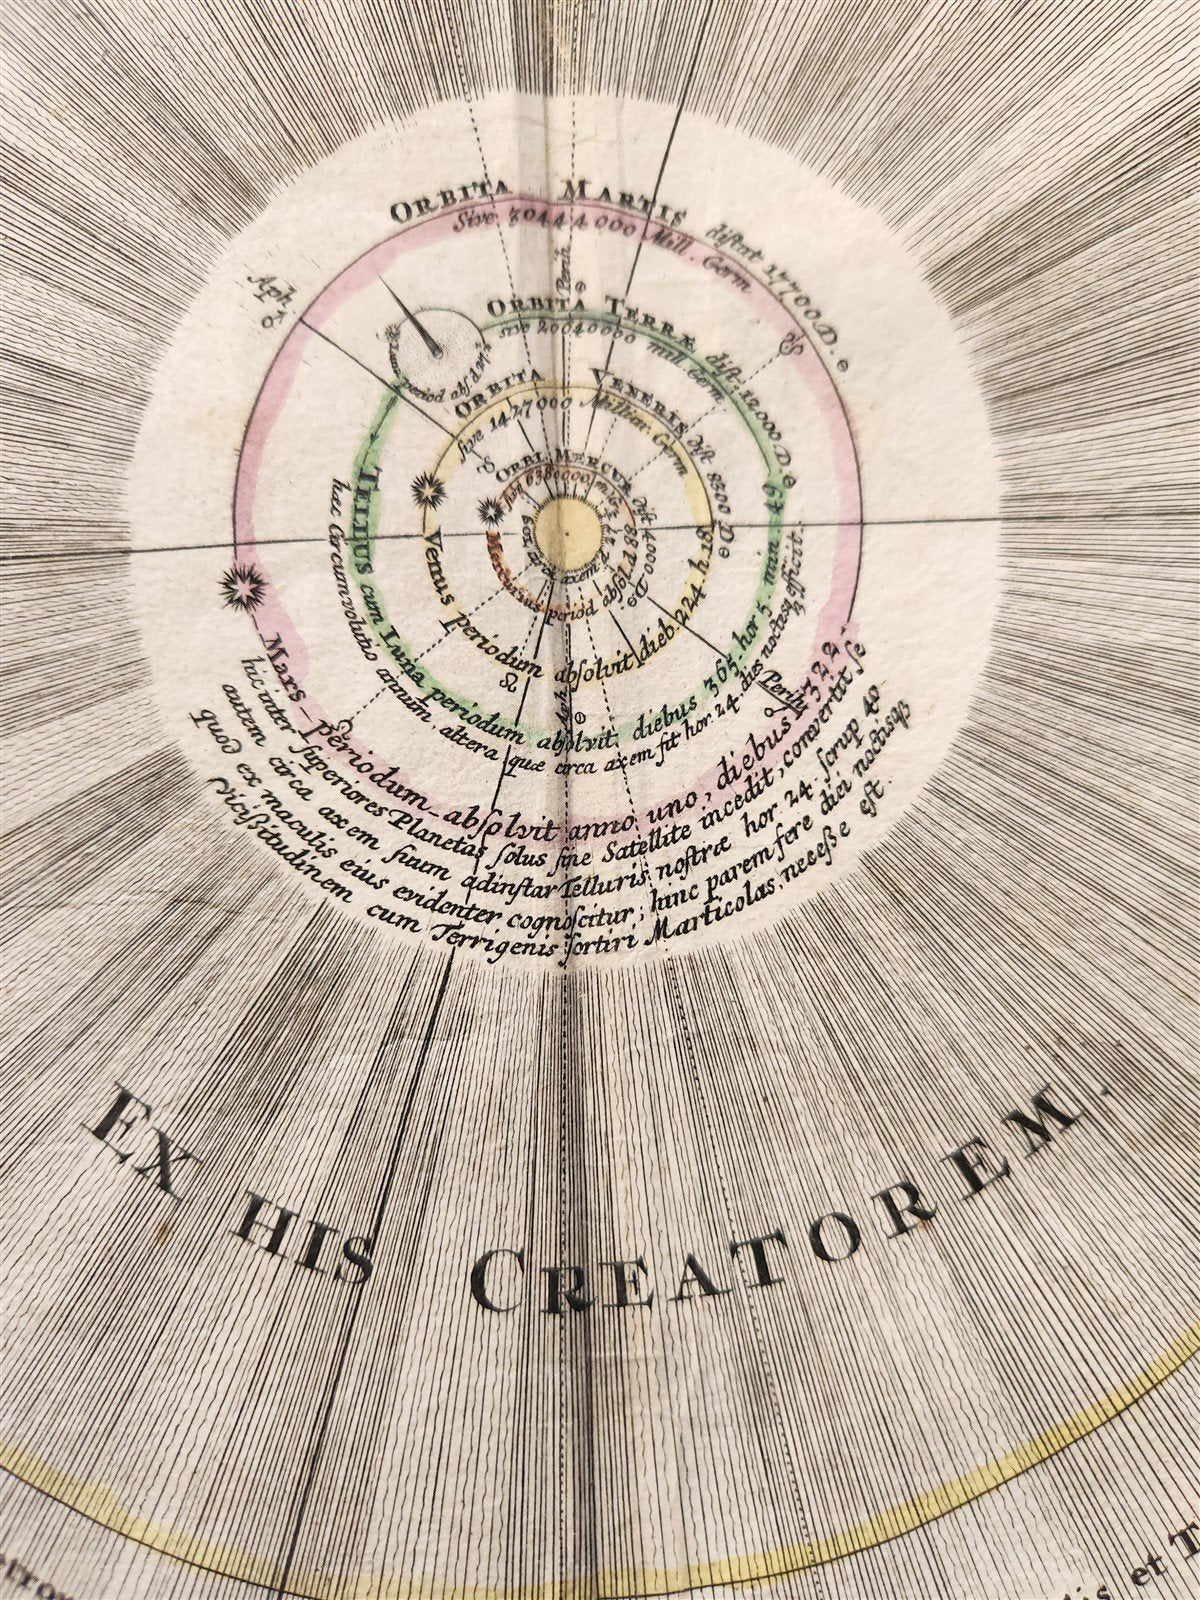 ORBITA MARTIS distat 17700. D. e
Sive 30444000 Mill. Germ
Aph.
Perih.
ORBITA TERRÆ dist. 12000. D. e
sive 20040000 mill germ
period abs. d.
ORBITA VENERIS dist 8300 D e
sive 1427000 Milliar. Germ
ORBI. MERCUR dist 4000 D e
Mercurius period absol. 88
axem
Venus periodum absolvit dieb. 224 h 18
TELLUS cum Luna periodum absolvit diebus 365. hor 5. min 49
hæc Circumvolutio annum, altera quæ circa axem fit hor 24. dies noctesq efficit.
Aph.
Perih.
Mars periodum absolvit anno uno, diebus 322.
hic inter superiores Planetas solus sine Satellite incedit, convertit se
autem circa axem suum adinstar Telluris nostræ hor. 24. scrup 40
quod ex maculis eius evidenter cognoscitur; hinc parem fere diei noctisqß
vicissitudinem cum Terrigenis sortiri Marticolas, neceße est.
EX HIS CREATOREM.
et